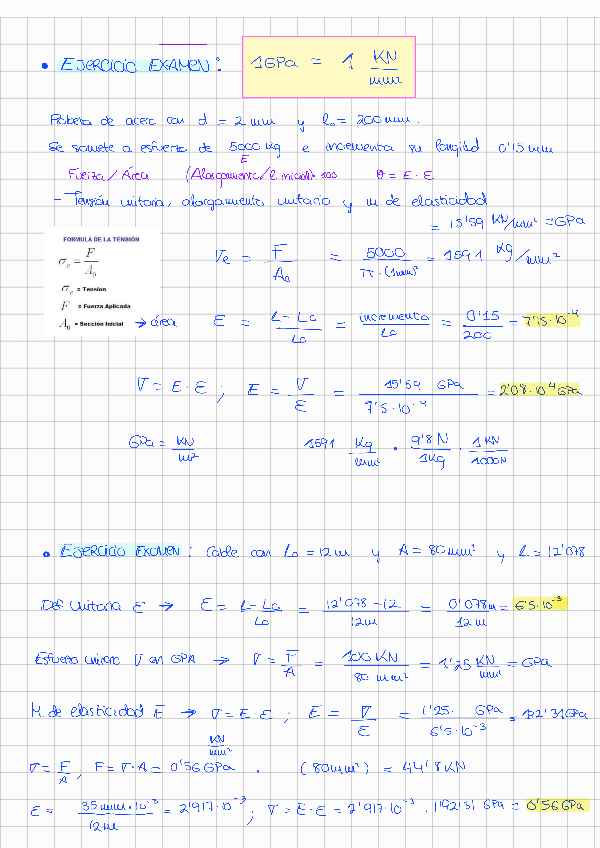 • EJERCICIO EXAMEN: 1GPa = 1 KN/mm²
Probeta de acero con d = 2 mm y lo = 200 mm.
Se somete a esfuerzo de 5000 Kg e incrementa su longitud 0'15 mm
F
Fuerza/Área (Alargamiento/l. inicial)·100 σ = E·ε
- Tensión unitaria, alargamiento unitario y m de elasticidad
= 15'59 KN/mm² = GPa
FORMULA DE LA TENSIÓN
σe = F/A0
σe = Tension
F = Fuerza Aplicada
A0 = Sección Inicial → área
σe = F/A0 = 5000/π·(1mm)² = 1591 Kg/mm²
ε = L-Lo/Lo = incremento/Lo = 0'15/200 = 7'5·10⁻⁴
σ = E·ε ; E = σ/ε = 15'59 GPa/7'5·10⁻⁴ = 2'08·10⁴ GPa
GPa = KN/m² 1591 Kg/mm² · 9'8N/1Kg · 1KN/1000N
• EJERCICIO EXAMEN: Cable con Lo = 12m y A = 80mm² y L = 12'078
Def. Unitaria ε → ε = L-Lo/Lo = 12'078-12/12m = 0'078m/12m = 6'5·10⁻³
Esfuerzo unitario σ en GPA → σ = F/A = 100 KN/80 mm² = 1'25 KN/mm² = GPa
M. de elasticidad E → σ = E·ε ; E = σ/ε = 1'25 GPa/6'5·10⁻³ = 192'31GPa
KN/mm²
σ = F/A ; F = σ·A = 0'56 GPa · (80mm²) = 44'8 KN
ε = 35mm·10⁻³/12m = 2'917·10⁻³ ; σ = E·ε = 2'917·10⁻³ · 192'31 GPa = 0'56 GPa